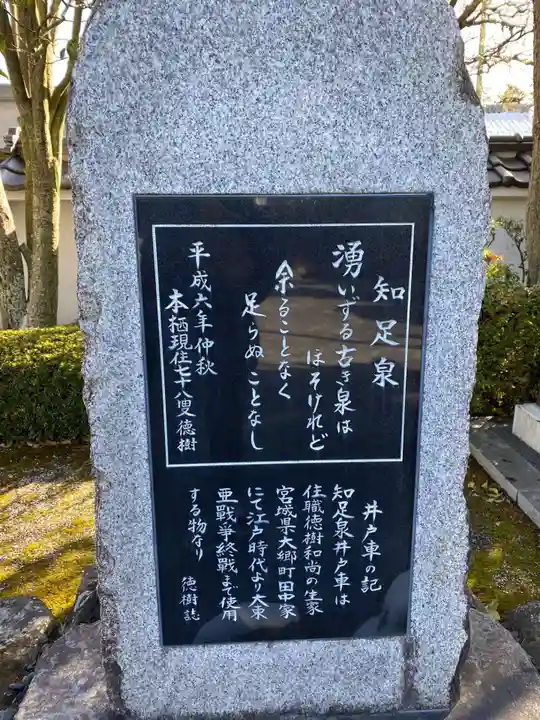 知足泉
湧いずる古き泉は
ほそけれど
余ることなく
足らぬことなし
平成六年仲秋
本栖現住七十八叟徳樹
井戸車の記
知足泉井戸車は
住職徳樹和尚の生家
宮城県大郷町田中家
にて江戸時代より大東
亜戦争終戦まで使用
する物なり
徳樹誌